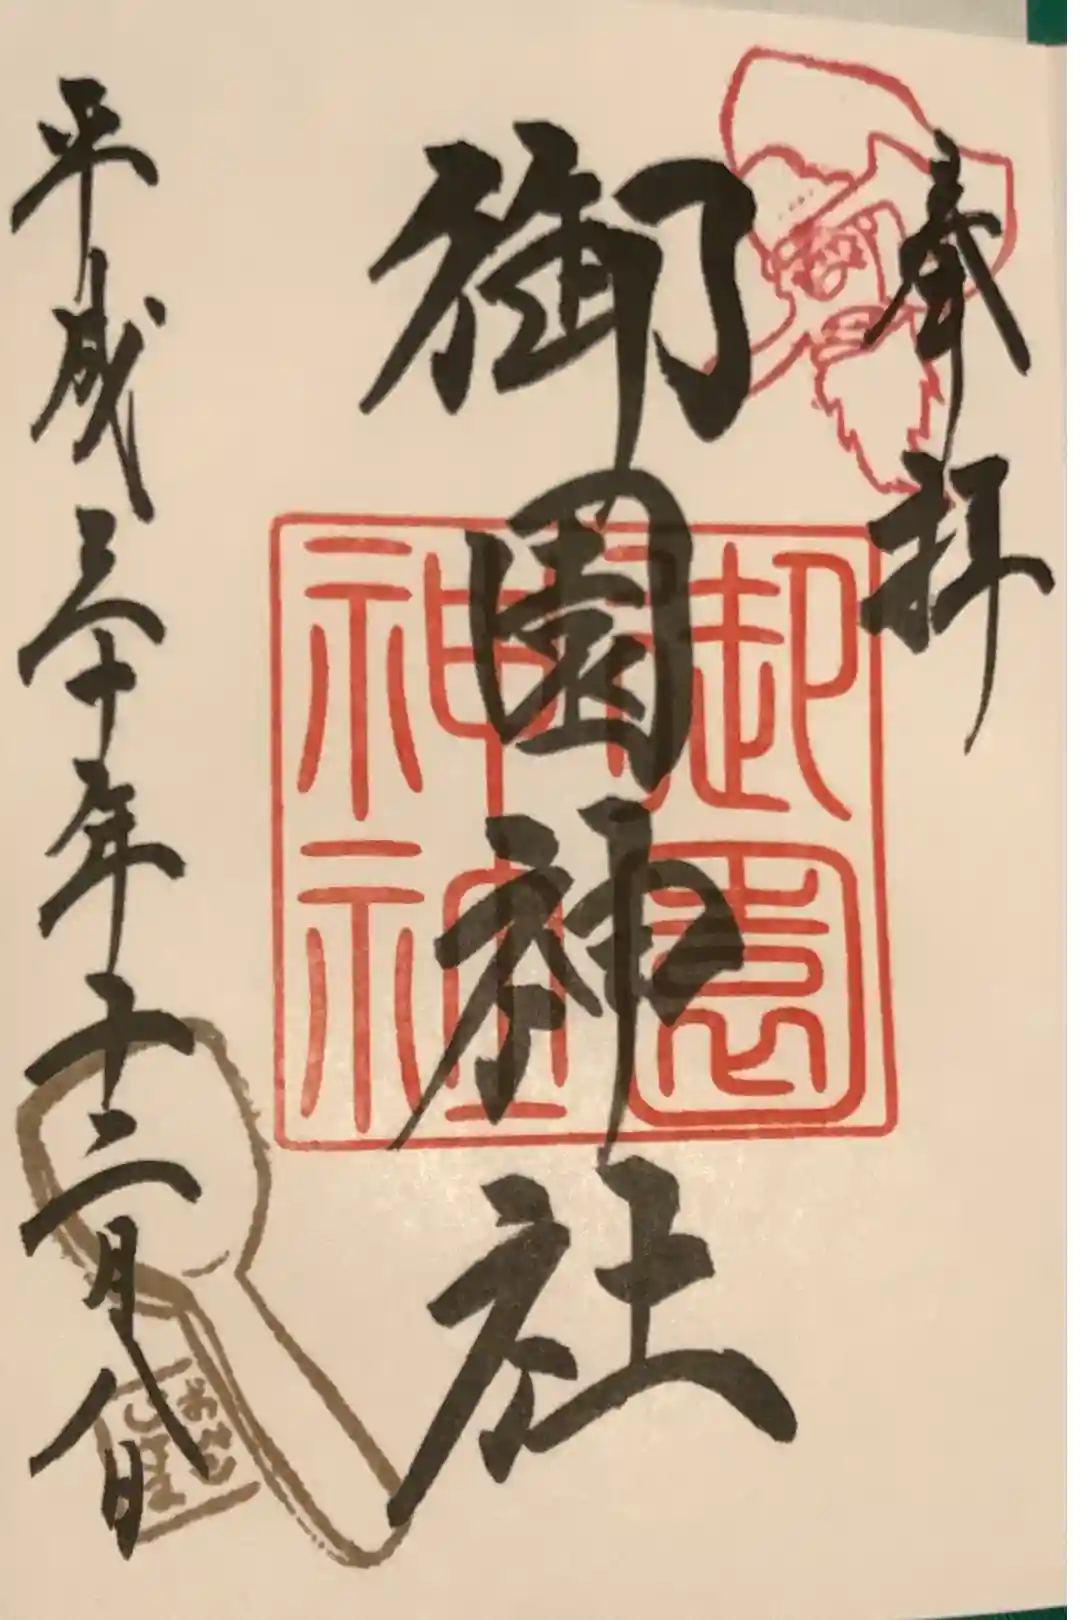 奉拝
御園神社
御園
神社
平成三十年十二月八日
おへら
しさま